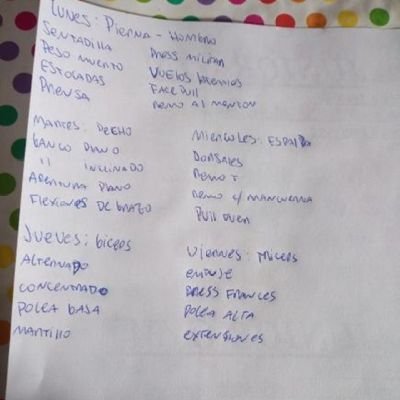 LUNES: PIERNA - HOMBRO
SENTADILLA
PESO MUERTO
ESTOCADAS
PRENSA
PRESS MILITAR
VUELOS LATERALES
FACE PULL
REMO AL MENTON
MARTES: PECHO
BANCO PLANO
" INCLINADO
APERTURA PLANO
FLEXIONES DE BRAZO
MIERCOLES: ESPALDA
DORSALES
REMO T
REMO C/ MANCUERNA
PULL OVER
JUEVES: BICEPS
ALTERNADO
CONCENTRADO
POLEA BAJA
MARTILLO
VIERNES: TRICEPS
EMPUJE
PRESS FRANCES
POLEA ALTA
EXTENSIONES